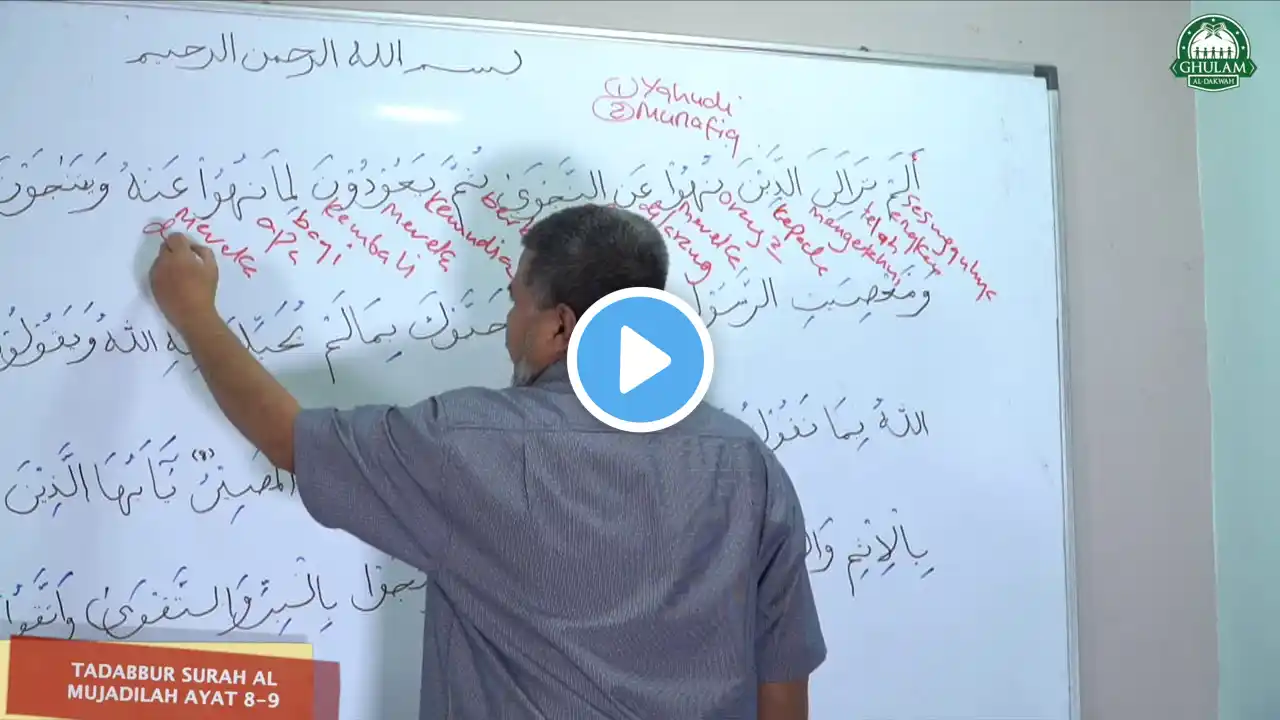 بسم الله الرحمن الرحيم
① Yahudi
② Munafiq
أَلَمْ تَرَالَى الَّذِيْنَ نُهُوْا عَنِ النَّجْوَىٰ ثُمَّ يَعُوْدُوْنَ لِمَانُهُوْا عَنْهُ وَيَتَنَاجَوْنَ
sesungguhnya
engkau
telah
mengetahui
kepada
orang2
mereka
dilarang
kemudian
mereka
kembali
bagi
apa
mereka
di
وَمَعْصِيَتِ الرَّسُوْلِ حَيَّوْكَ بِمَالَمْ يُحَيِّكَ بِهِ اللهُ وَيَقُوْلُوْ
اللهُ بِمَا نَقُوْلُ
الْمَصِيْرُ (٨) يَٰٓأَيُّهَا الَّذِيْنَ
بِالْاِثْمِ وَال
جَوْا بِالْبِرِّ وَالتَّقْوَىٰ وَاتَّقُوا
GHULAM
AL-DAKWAH
TADABBUR SURAH AL
MUJADILAH AYAT 8-9